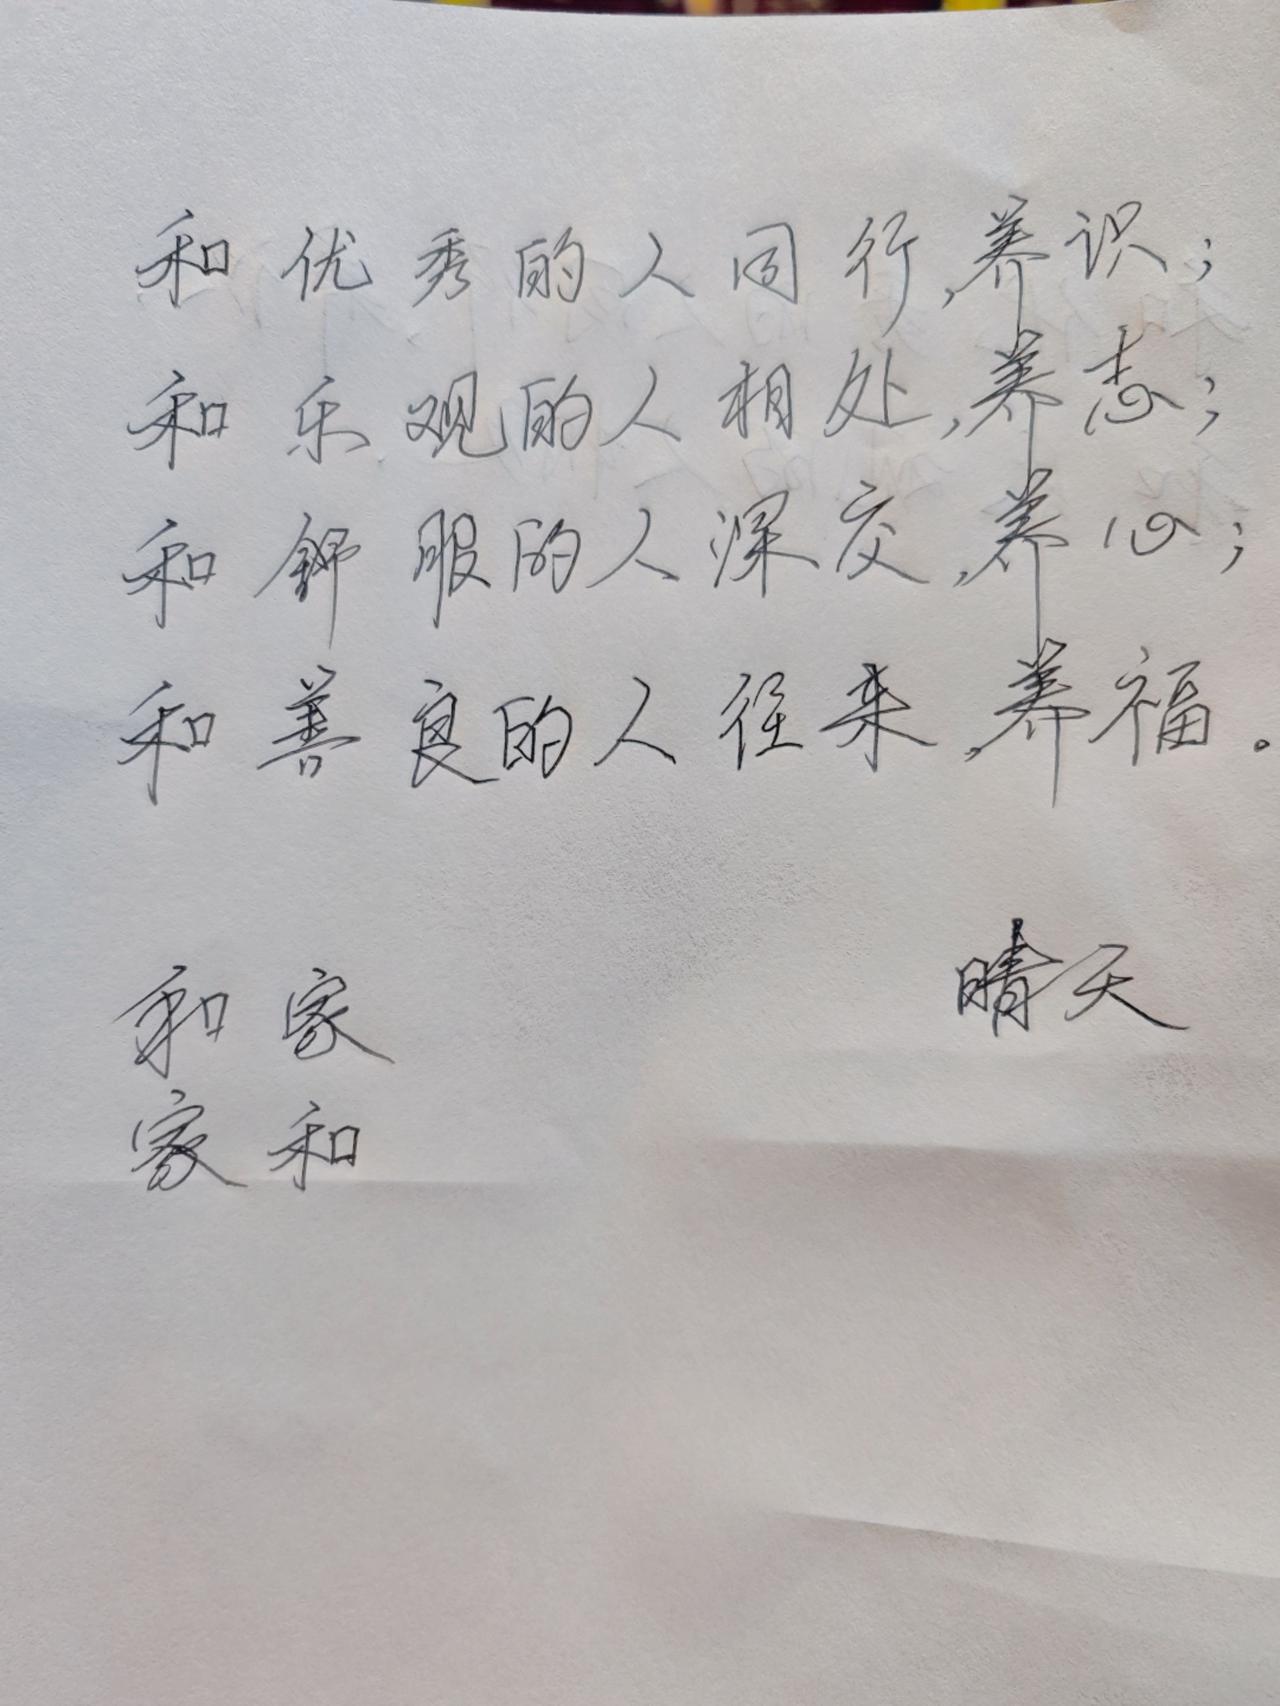 和优秀的人同行,养识;
和乐观的人相处,养志;
和舒服的人深交,养心;
和善良的人往来,养福。
和家 晴天
家和